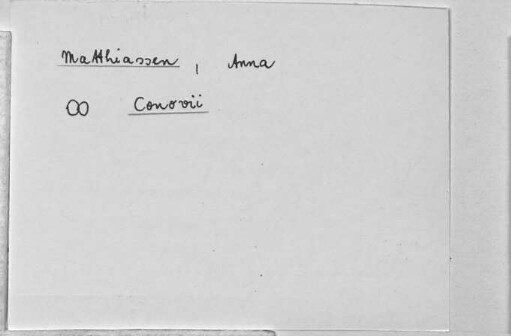 Matthiassen, Anna
∞ Conovii